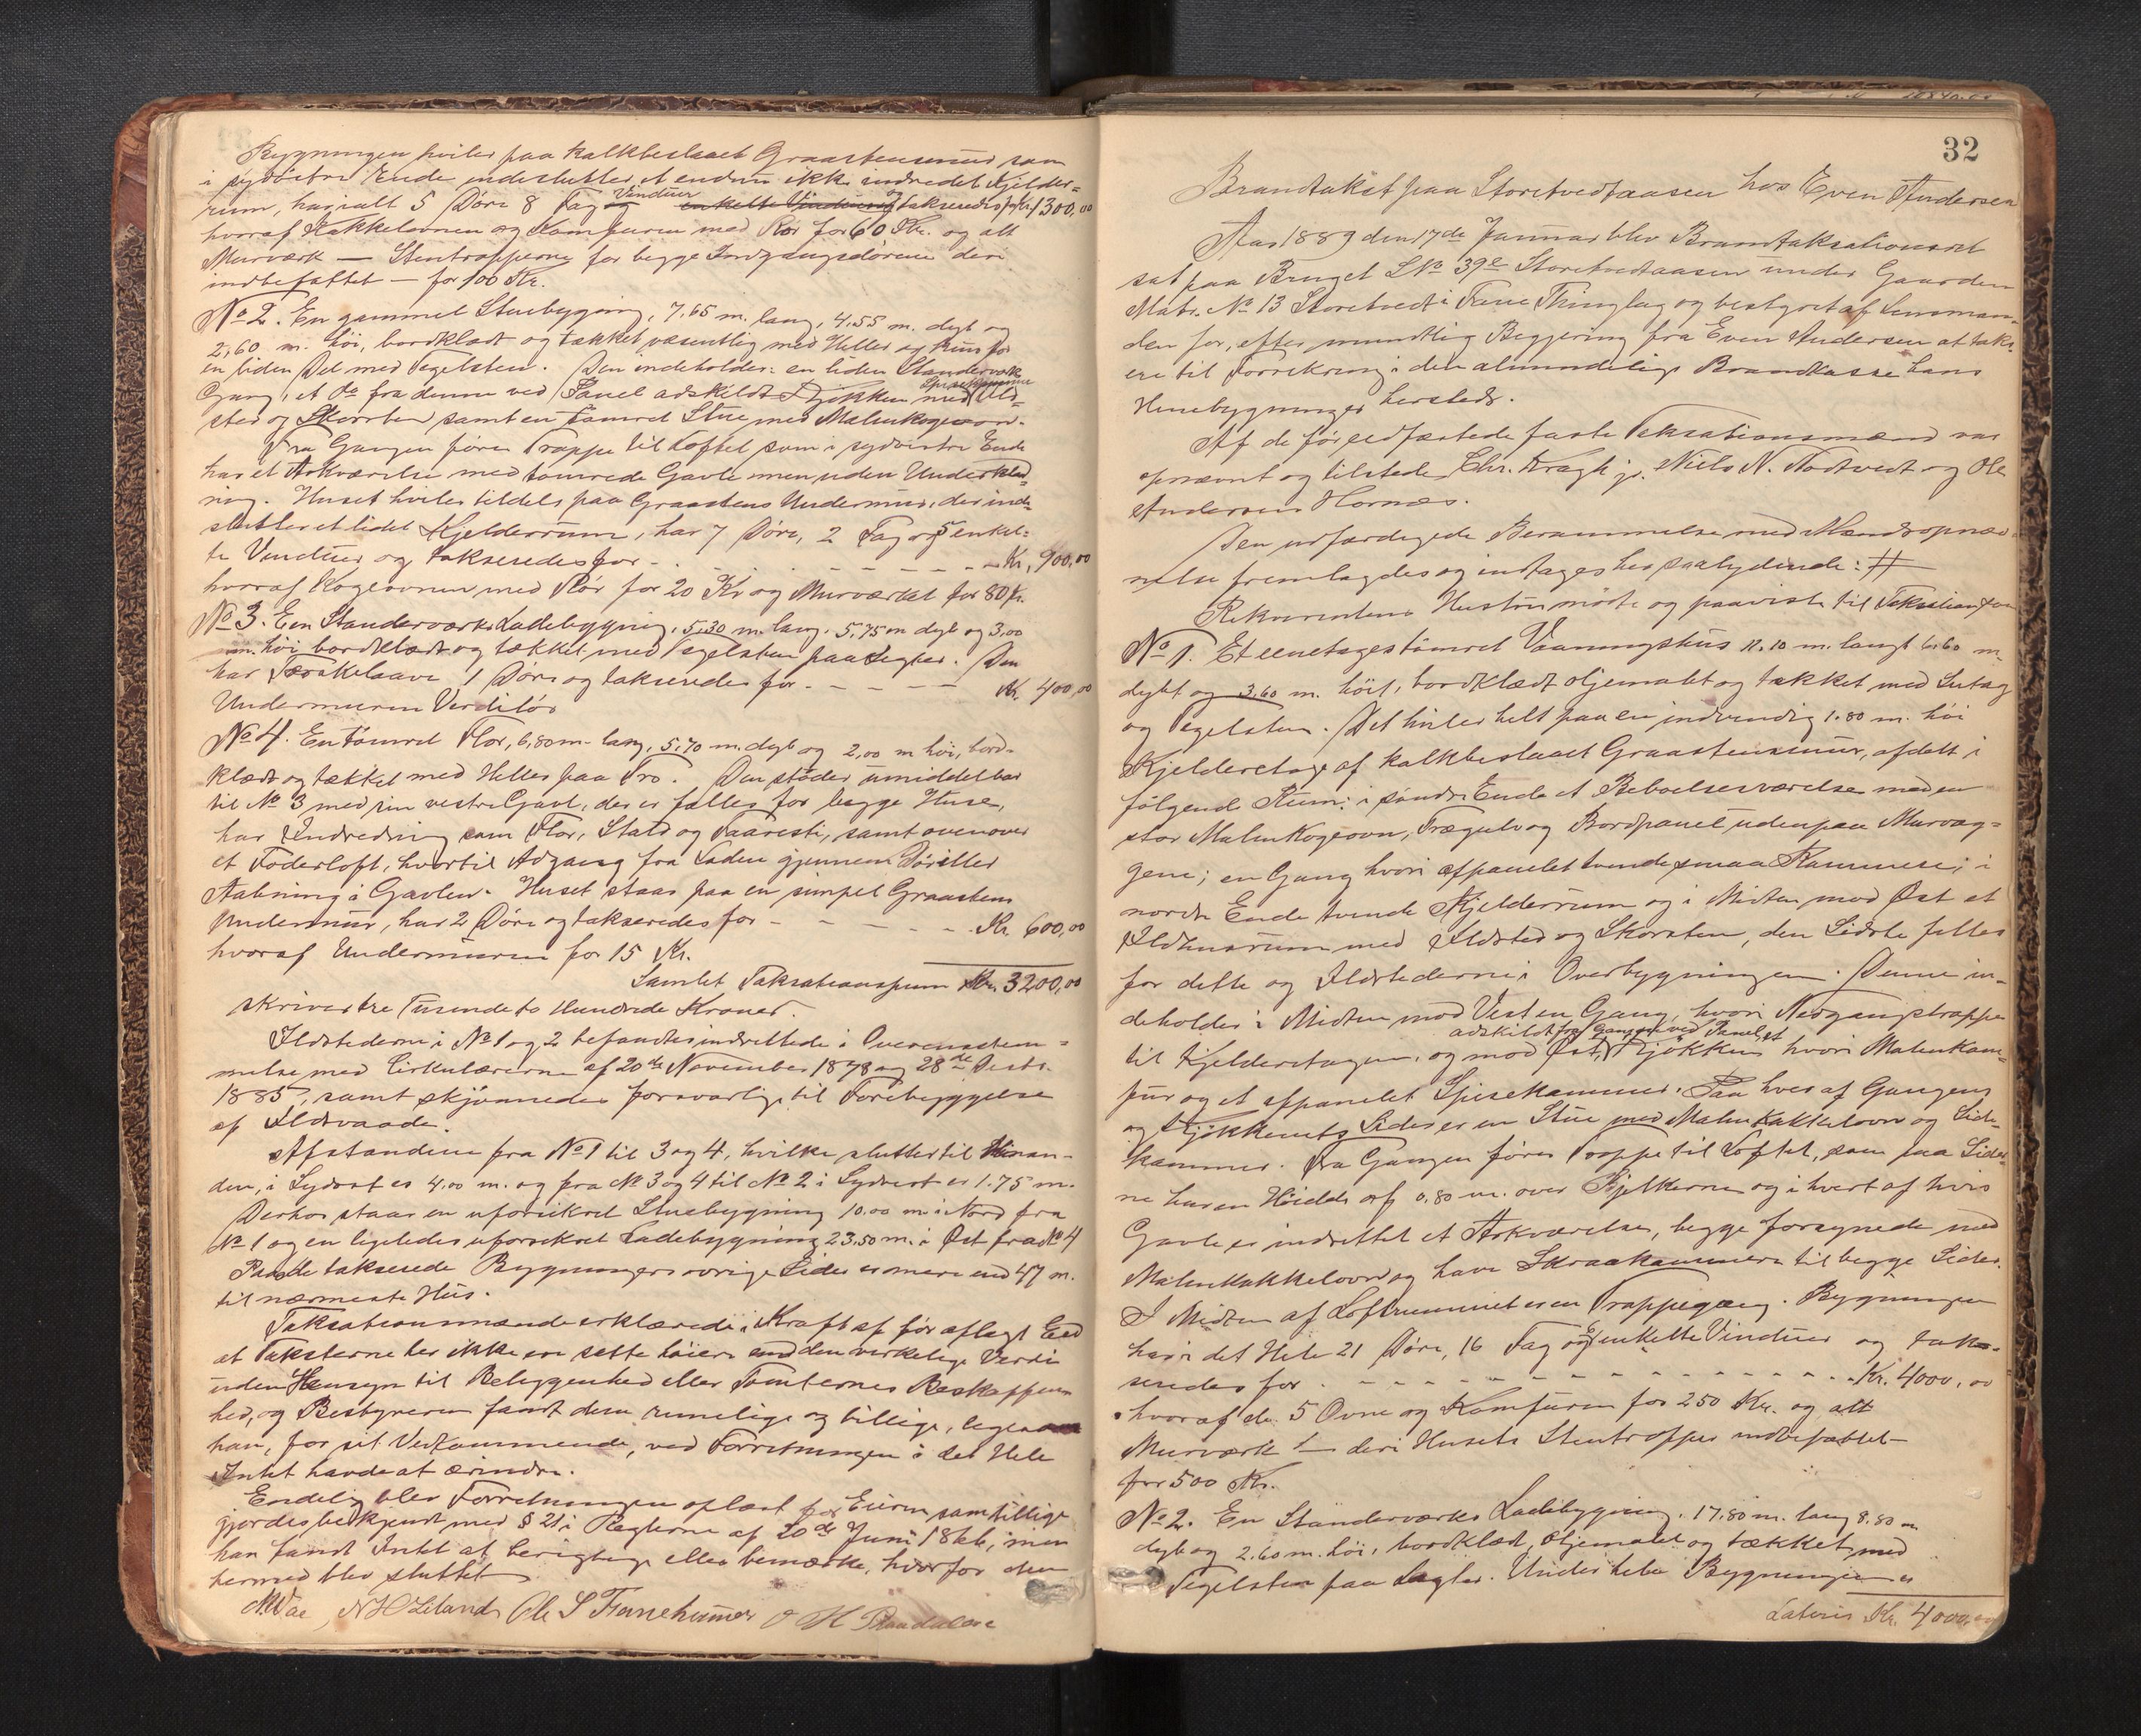 Bygningen hviler paa kalkbeslaaet Graastensmur som
i sydöstre Ende indeslutter et endnu ikke indredet Kjelder-
rum, har ialt 5 Döre 8 Fag Vinduer og takseredes for Kr. 1300,00
hvoraf Kakkelovnen og Komfuren med Rör for 60 Kr. og alt
Murværk — Stentrapperne for begge Indgangsdörene deri
indbefattet — for 100 Kr.
No 2. En gammel Stuebygning, 7,65 m. lang, 4,55 m. dyb og
2,60 m. höi, bordklædt og tækket væsentlig med Heller og kun for
en liden Del med Tegelsten. Den indeholder: en liden Standerværks
Gang, et do fra denne ved Panel adskildt Kjökken med Spisekammer Ild-
sted og Skorsten samt en tömret Stue med Malmkogeovn.
Fra Gangen förer Trappe til Loftet som i sydvestre Ende
har et Arkværelse med tömrede Gavle men uden Underklæd-
ning. Huset hviler tildels paa Graastens Undermur, der inde-
slutter et lidet Kjelderrum, har 7 Döre, 2 Fag og 5 enkel-
te Vinduer og takseredes for - - - - - Kr. 900,00
hvoraf Kogeovnen med Rör for 20 Kr og Murværket for 80 Kr.
No 3. Een Standerværks Ladebygning, 5,30 m. lang, 5,75 m dyb og 3,00
m. höi bordklædt og tækket med Tegelsten paa Legter. Den
har Tærskelaave 1 Döre og takseredes for - - - - Kr. 400,00
Undermuren Verdilös
No 4. En tömret Flor, 6,80 m. lang, 5,70 m. dyb og 2,00 m höi, bord-
klædt og tækket med Heller paa Tro. Den stöder umiddelbar
til No 3 med sin vestre Gavl, der er fælles for begge Huse,
har Indredning som Flor, Stald og Faaresti, samt ovenover
et Foderloft, hvortil Adgang fra Laden gjennem Dör eller
Aabning i Gavlen. Huset staar paa en simpel Graastens
Undermur, har 2 Döre og takseredes for - - - - - Kr. 600,00
hvoraf Undermuren for 15 Kr.
Samlet Taksationssum Kr. 3200,00
skriver tre Tusinde to Hundrede Kroner.
Ildstederne i No 1 og 2 befandtes indrettede i Overensstem-
melse med Cirkulærerne af 20de November 1878 og 28de Septr.
1885, samt skjönnedes forsvarlige til Forebyggelse
af Ildsvaade.
Afstandene fra No 1 til 3 og 4, hvilke slutter til Hinan-
den, i Sydost er 4,00 m. og fra No 3 og 4 til No 2 i Sydvest er 1.75 m.
Derhos staar en uforsikret Stuebygning 10.00 m i Nord fra
No 1 og en ligeledes uforsikret Ladebygning 23,50 m. i Öst fra No 4
Paa de takserede Bygningers övrige Sider er mere end 47 m.
til nærmeste Hus.
Taksationsmændene erklærede i Kraft af för aflagt Eed
at Taksterne her ikke ere satte höiere end den virkelige Verdi
uden Hensyn til Beliggenhed eller Tomternes Beskaffen-
hed, og Bestyreren fandt dem rimelige og billige, ligesom
han, for sit Vedkommende, ved Forretningen i det Hele
Intet havde at erindre.
Endelig blev Forretningen oplæst for Eieren samt tillige
gjordes bekjendt med § 21 i Reglerne af 20de Juni 1846, men
han fandt Intet at berigtige eller bemærke, hvorfor den
hermed blev sluttet
NH Liland Ole S Fanehammer O H
32
Brandtakst paa Storetvedtaasen hos Even Andersen
Aar 1889 den 17de Januar blev Brandtaksationsret
sat paa Bruget LNo 39e Storetvedtaasen under Gaarden
Matr. No 13 Storetvedt i Fane Thinglag og bestyret af Lensman-
den for, efter mundtlig Begjering fra Even Andersen at taks-
ere til Forsikring i den almindelige Brandkasse hans
Huusbygninger hersteds.
Af de för edfæstede faste Taksationsmænd var
opnævnt og tilstede Chr. Kragh jr. Niels N. Nattvedt og Ole
Andersen Hornæs.
Den udfærdigede Berammelse med Mandsopnæv-
nelse fremlagdes og indtages her saalydende: #
Rekvirentens Hustru mödte og paaviste til Taksation som
No 1. Et eenetages tömret Vaaningshus 11.10 m. langt 6.60 m.
dybt og 3.60 m. höit, bordklædt oljemalet og tækket med Sutag
og Tegelsten. Det hviler helt paa en indvendig 1.80 m. höi
Kjelderetage af kalkbeslaaet Graastensmur, afdelt i
fölgende Rum: i söndre Ende et Beboelsesværelse med en
stor Malm Kogeovn, Trægulv og Bordpanel udenpaa Murvæg-
gene; en Gang hvori afpanelet tvende smaa Kammere; i
nordre Ende tvende Kjelderrum og i Midten mod Öst et
Ildhusrum med Ildsted og Skorsten, den Sidste fælles
for dette og Ildstederne i Overbygningen. Denne in-
deholder i Midten mod Vest en Gang, hvori Nedgangstrappe
til Kjelderetagen, og mod Öst, adskildt fra Gangen ved Panel, et Kjökken hvori Malmkom-
fur og et afpanelet Spisekammer. Paa hver af Gangens
og Kjökkenets Sider er en Stue med Malmkakkelovn og Side-
kammer. Fra Gangen förer Trappe til Loftet, som paa Sider-
ne har en Höide af 0.80 m. over Bjelkerne og i hvert af hvis
Gavle er indrettet et Arkværelse, begge forsynede med
Malmkakkelovn og have Skraakammere til begge Sider.
I Midten af Loftrummet er en Trappegang. Bygningen
har i det Hele 21 Döre, 16 Fag og 6 enkelte Vinduer og tak-
seredes for - - - - - Kr. 4000,00
hvoraf de 5 Ovne og Komfuren for 250 Kr. og alt
Murværk — deri Husets Stentrapper indbefattet —
for 500 Kr.
No 2. En Standerværks Ladebygning. 17.80 m. lang 8.80 m
dyb og 2.60 m. höi, bordklædt, oljemalet og tækket med
Tegelsten paa Legter. Under hele Bygningen er
Lateris Kr. 4000,00